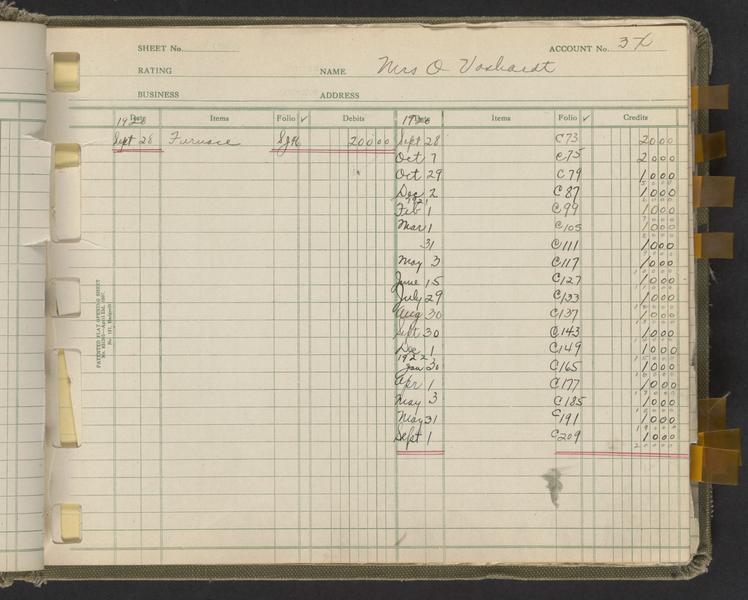 SHEET No. ACCOUNT No. 3
RATING NAME Mrs O Voshardt
BUSINESS ADDRESS
Date Items Folio ✓ Debits Date Items Folio ✓ Credits
1920 1920
Sept 28 Furnace 200 00 Sept 28 C73 20 00
Oct 7 C75 20 00
Oct 29 C79 10 00
Dec 2 C87 10 00
1921
Feb 1 C99 10 00
Mar 1 C105 10 00
31 C111 10 00
May 3 C117 10 00
June 15 C127 10 00
July 29 C133 10 00
Aug 30 C137 10 00
Sept 30 C143 10 00
Dec 1 C149 10 00
1922
Jan 30 C165 10 00
Apr 1 C177 10 00
May 3 C185 10 00
May 31 C191 10 00
Sept 1 C209 10 00
PATENTED FLAT OPENING SHEET